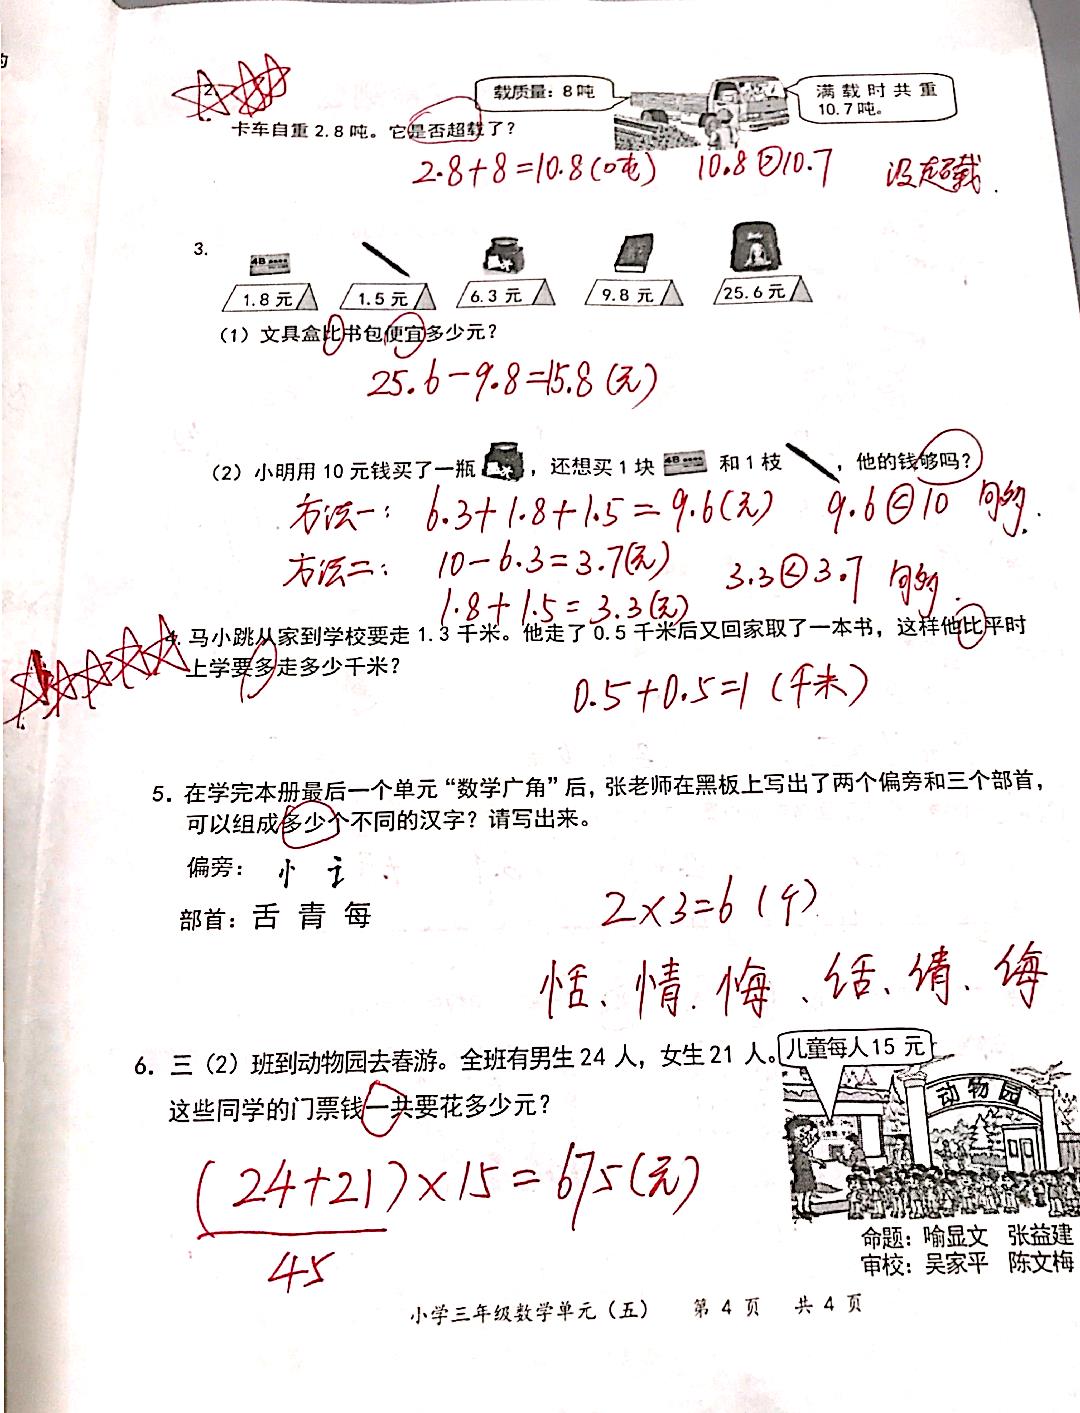 的
2.
载质量：8吨
满载时共重
10.7吨。
卡车自重2.8吨。它是否超载了？
2.8+8=10.8(吨) 10.8>10.7 没超载.
3.
4B
1.8元 1.5元 6.3元 9.8元 25.6元
（1）文具盒比书包便宜多少元？
25.6-9.8=15.8(元)
（2）小明用10元钱买了一瓶 ，还想买1块 4B 和1枝 ，他的钱够吗？
方法一： 6.3+1.8+1.5=9.6(元) 9.6<10 够.
方法二： 10-6.3=3.7(元) 3.3<3.7 够.
1.8+1.5=3.3(元)
4. 马小跳从家到学校要走1.3千米。他走了0.5千米后又回家取了一本书，这样他比平时
上学要多走多少千米？
0.5+0.5=1(千米)
5. 在学完本册最后一个单元“数学广角”后，张老师在黑板上写出了两个偏旁和三个部首，
可以组成多少个不同的汉字？请写出来。
偏旁： 忄 讠
部首：舌 青 每
2×3=6(个)
恬、情、悔、话、请、诲
6. 三（2）班到动物园去春游。全班有男生24人，女生21人。
儿童每人15元
动物园
这些同学的门票钱一共要花多少元？
(24+21)×15=675(元)
45
命题：喻显文 张益建
审校：吴家平 陈文梅
小学三年级数学单元（五） 第4页 共4页